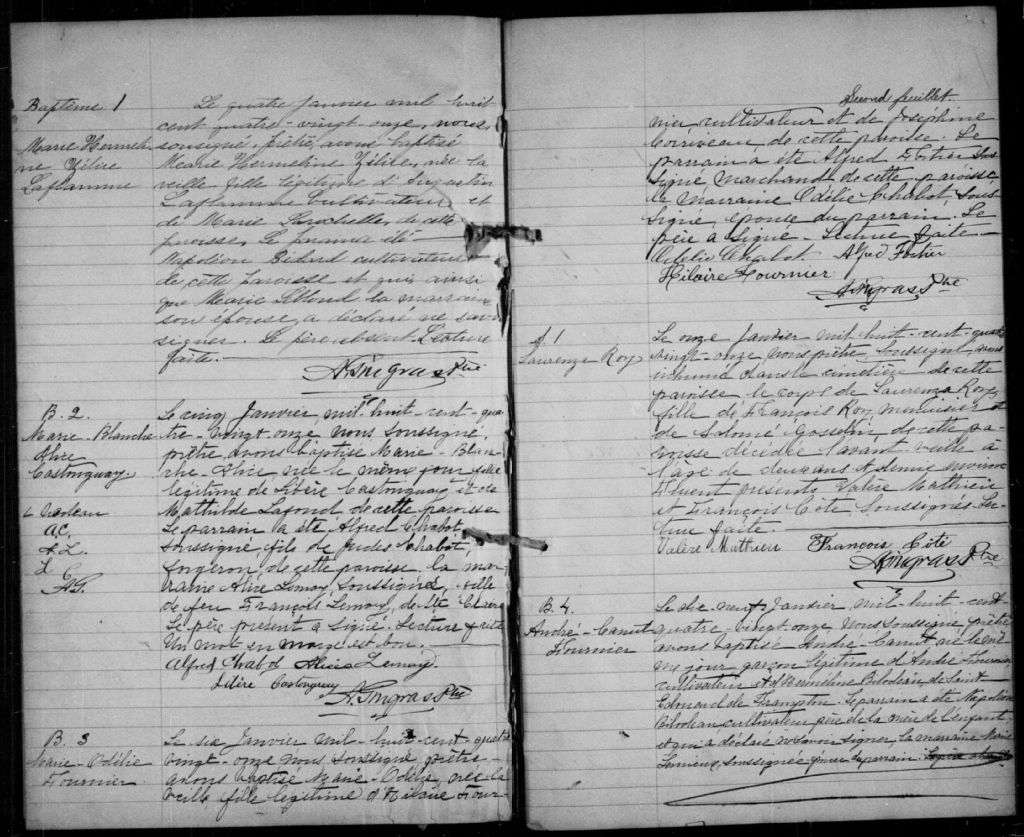 Baptême 1
Marie Hermeli-
ne Zélire
Laflamme
Le quatre Janvier mil huit
cent quatre-vingt onze, nous,
soussigné, prêtre, avons baptisé
Marie Hermeline Zélire, née la
veille fille légitime d'Augustin
Laflamme cultivateur et
de Marie de cette
paroisse. Le parrain a été
Napoléon Bédard cultivateur
de cette paroisse et qui, ainsi
que Marie Leblond la marrain
son épouse, a déclaré ne savoir
signer. Le père absent. Lecture
faite.
A. Gingras Ptre
B. 2.
Marie-Blanche
Alice
Castonguay
A.C.
A. L.
L C
A.G.
Le cinq Janvier mil-huit-cent-qua-
tre-vingt onze, nous soussigné,
prêtre, avons baptisé Marie-Blan-
che-Alice née le même jour fille
légitime de Libère Castonguay et de
Mathilde Lafond de cette paroisse
Le parrain a été Alfred Chabot,
soussigné, fils de Judes Chabot,
forgeron de cette paroisse la mar-
raine Alice Lemay, soussignée, fille
de feu François Lemay, de Ste Claire
Le père présent a signé. Lecture faite
Un mot en marge est bon.
Alfred Chabot Alice Lemay
Libère Castonguay
A. Gingras Ptre
B. 3
Marie-Odélie
Fournier
Le six Janvier mil-huit-cent-quatre
vingt-onze nous soussigné prêtre
avons baptisé Marie-Odélie, née la
veille fille légitime d'Hilaire Four-
Second feuillet.
nier cultivateur et de Joséphine
Corriveau de cette paroisse. Le
parrain a été Alfred Fortier sous-
signé, marchand de cette paroisse
la marraine Odélie Chabot, sous-
signé, épouse du parrain. Le
père a signé. Lecture faite.
Odélie Chabot. Alfred Fortier
Hilaire Fournier
A. Gingras Ptre
S. 1
Laurenza Roy
Le onze Janvier mil huit-cent-quatre
vingt-onze nous prêtre soussigné, avons
inhumé dans le cimetière de cette
paroisse le corps de Laurenza Roy,
fille de François Roy, menuisier et
de Salomé Gosselin, de cette pa-
roisse décédée l'avant-veille à
l'age de deux ans et demie environ
Furent présents Valère Mathieu
et François Côté, soussignés Lec-
ture faite
Valère Mathieu François Côté
A. Gingras Ptre
B. 4.
André-Canut
Fournier
Le dix-neuf Janvier, mil-huit-cent
quatre-vingt onze, nous soussigné, prêtre
avons baptisé André Canut né le mê-
me jour garçon légitime d'André Fournier
cultivateur et d'Herméline Bilodeau, de Saint
Edmond de Frampton. Le parrain a été Napoléon
Bilodeau, cultivateur père de la mère de l'enfant
et qui a déclaré ne savoir signer, la marraine Marie
Lemieux, soussignée du parrain.